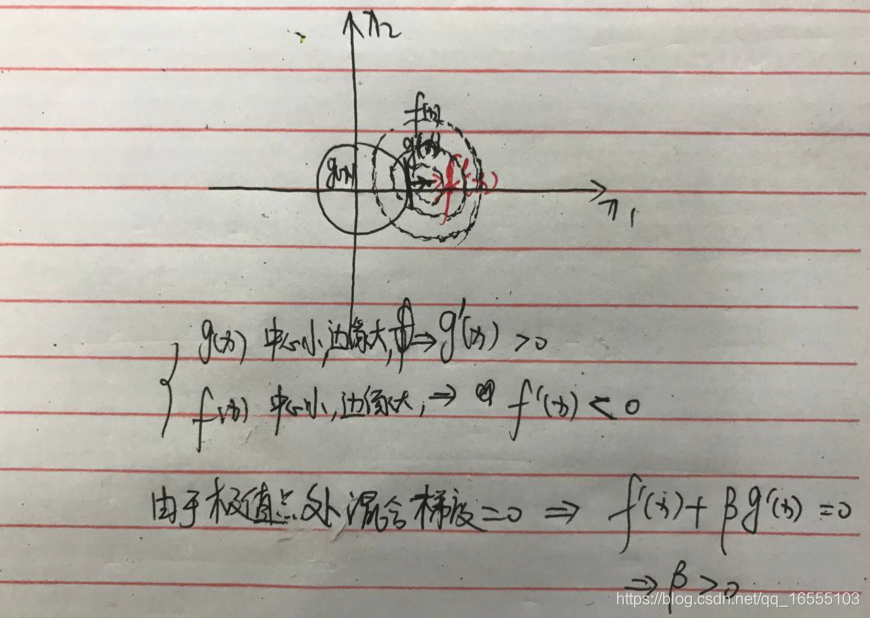 x₂
f(x)
g'(x)
g(x)
f'(x)
x₁
g(x) 中心小,边缘大, ⇒ g'(x) > 0
f(x) 中心小,边缘大, ⇒ f'(x) < 0
由于极值点处混合梯度=0 ⇒ f'(x) + βg'(x) = 0
⇒ β > 0
https://blog.csdn.net/qq_16555103